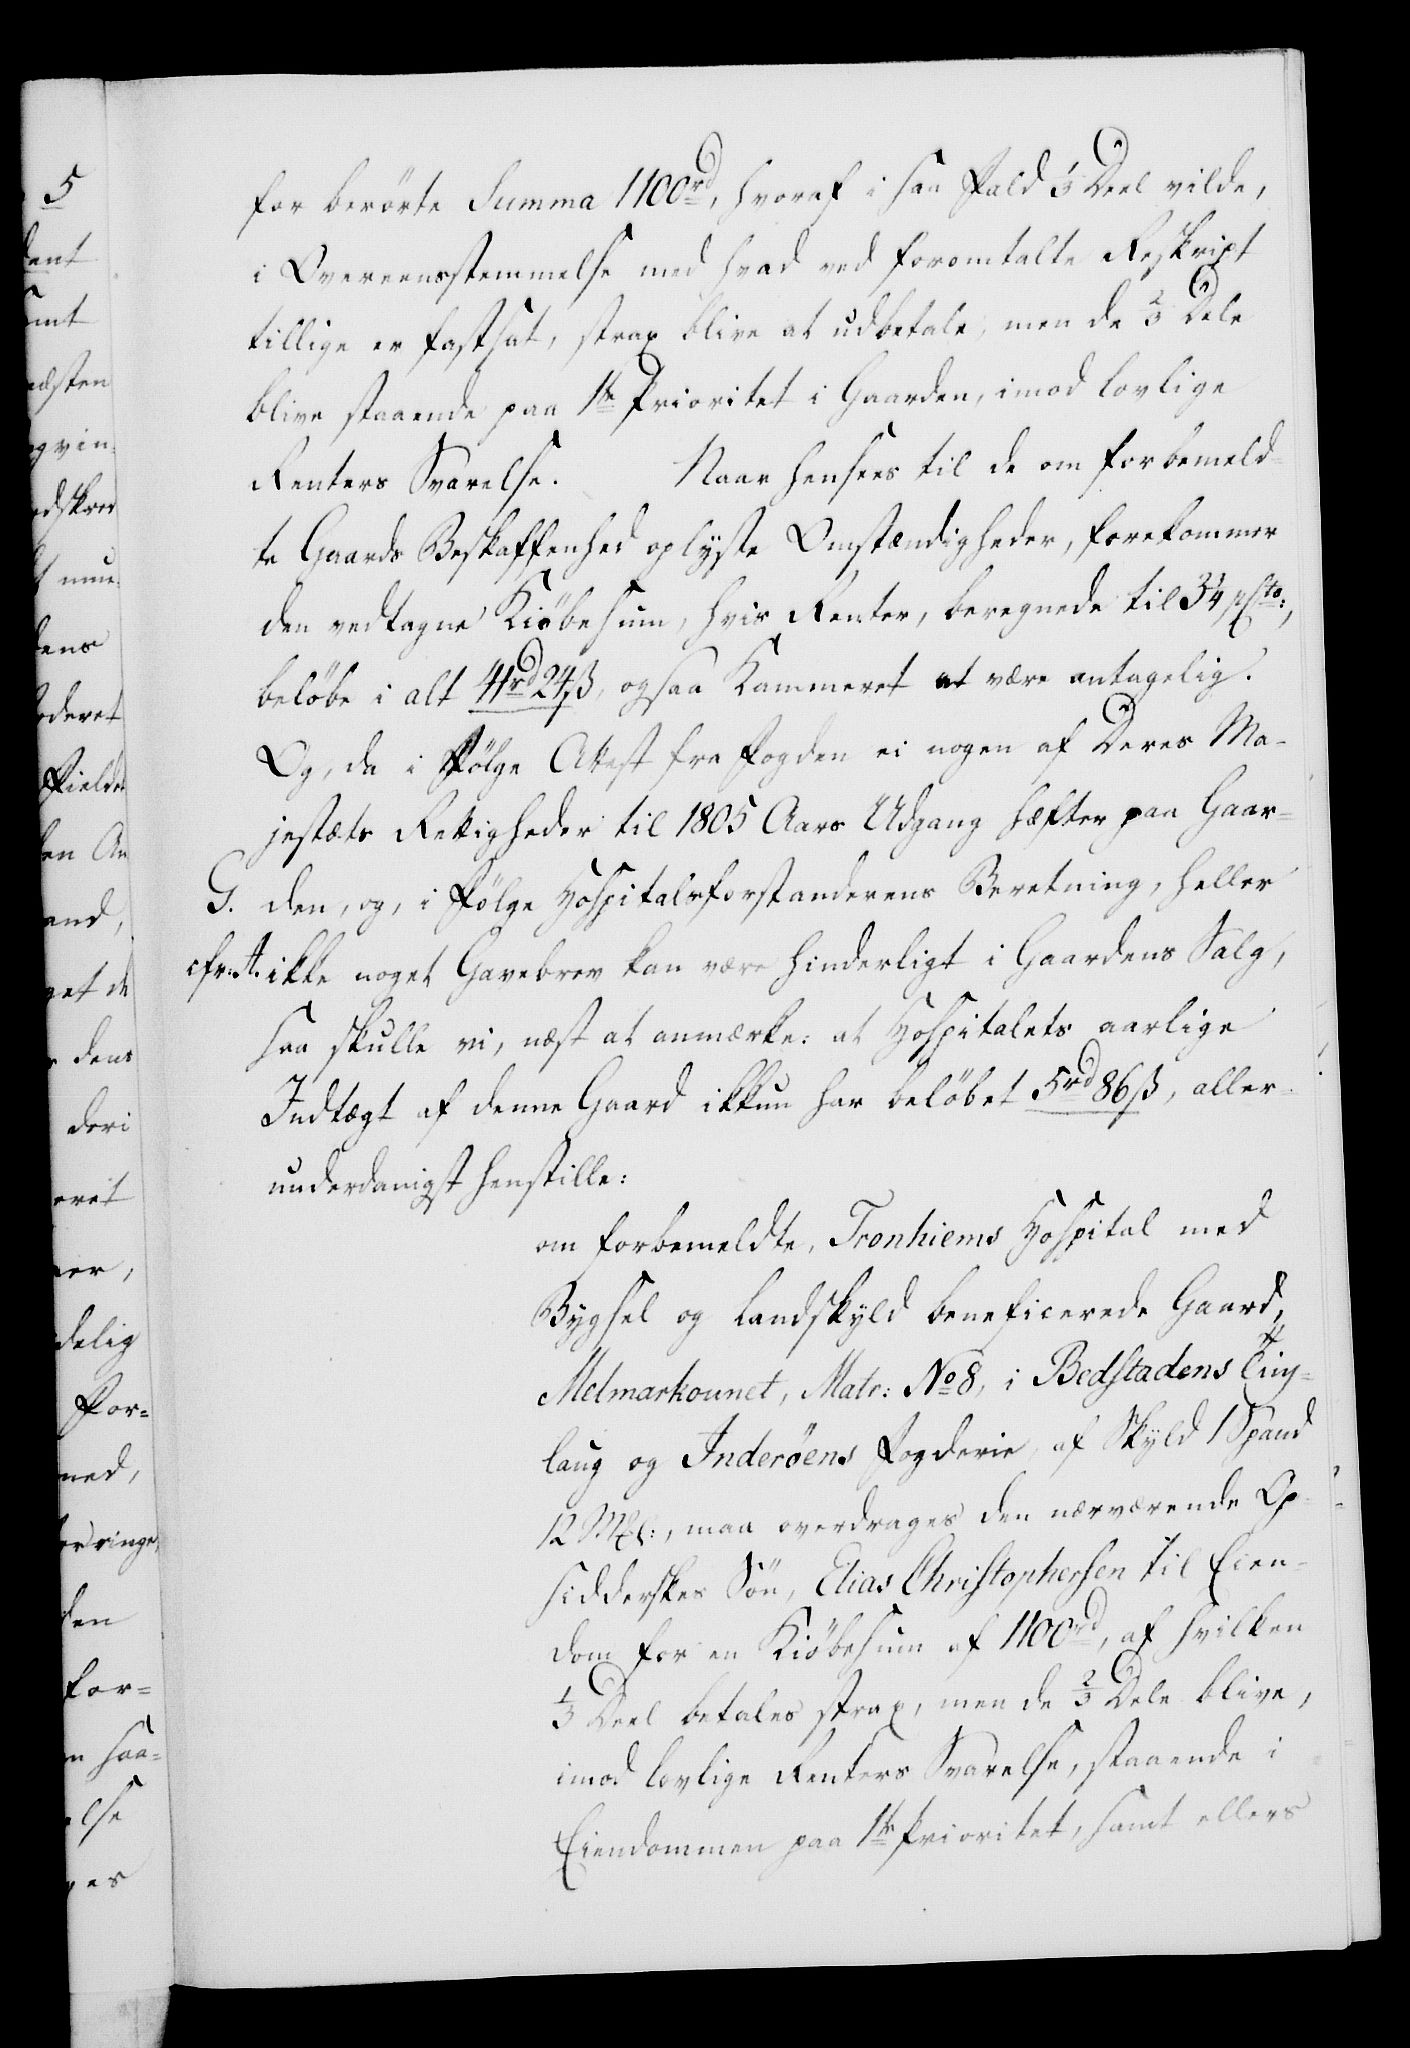 for berörte Summa 1100rd, hvoraf i saa Fald ⅓ Deel vilde,
i Overeensstemmelse med hvad ved foromtalte Reskript
tillige er fastsat, strax blive at udbetale, men de ⅔ Dele
blive staaende paa 1te Prioritet i Gaarden, imod lovlige
Renters Svarelse. Naar hensees til de om forbemeld-
te Gaards Beskaffenhed oplyste Omstændigheder, forekommer
den vedtagne Kiöbesum, hvis Renter, beregnede til 3¾ pCto:,
belöbe i alt 41rd 24ß, ogsaa Kammeret at være antagelig.
Og, da i Fölge Attest fra Fogden ei nogen af Deres Ma-
jestæts Rettigheder til 1805 Aars Udgang hæfter paa Gaar-
G. den, og, i Fölge Hospitalsforstanderens Beretning, heller
cfr: A. ikke noget Gavebrev kan være hinderligt i Gaardens Salg,
saa skulle vi, næst at anmærke: at Hospitalets aarlige
Indtægt af denne Gaard ikkun har belöbet 5rd 86ß, aller-
underdanigst henstille:
om forbemeldte, Tronhiems Hospital med
Bygsel og Landskyld beneficerede Gaard,
Melmarkounet, Matr: No 8, i Bedstadens Ting-
laug og Inderöens Fogderie, af Skyld 1 Spand
12 Mkl:, maa overdrages den nærværende Op-
sidderskes Sön, Elias Christophersen til Eien-
dom for en Kiöbesum af 1100rd, af hvilken
⅓ Deel betales strax, men de ⅔ Dele blive,
imod lovlige Renters Svarelse, staaende i
Eiendommen paa 1te Prioritet, samt ellers
5
dent
næsten
den
for-
saa-
else